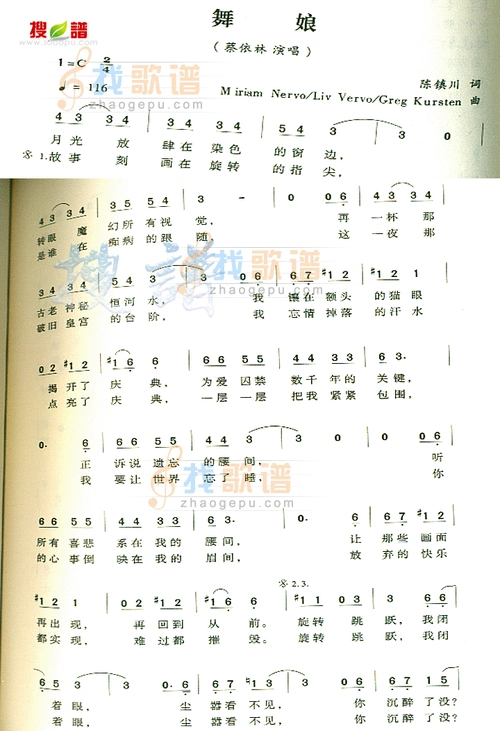 搜谱
www.sooopu.com
舞 娘
(蔡依林 演唱)
1=C 2/4
♩=116
陈镇川 词
Miriam Nervo/Liv Vervo/Greg Kursten 曲
找歌谱
zhaogepu.com
43 34 | 43 34 | 35 54 | 3 | 3 0 0
月光 放 肆在 染色 的窗 边,
※1.故事 刻 画在 旋转 的指 尖,
43 34 | 35 54 | 3 - | 0 06 | 43 34
转眼 魔 幻所有视 觉, 再 一杯 那
是谁 在 痴病的跟 随, 这 一夜 那
找歌谱
zhaogepu.com
43 34 | 35 54 | 3 06 | 67 #12 | #12 1
古老 神秘 恒河水, 我 镶在 额头 的猫眼
破旧 皇宫 的台阶, 我 忘情 掉落 的汗水
02 #12 | #16 06 | 66 55 | 34 32 | 63.
揭开了 庆 典, 为爱 囚禁 数千年的 关键,
点亮了 庆 典, 一层 一层 把我 紧紧 包围,
0. 6 | 66 55 | 44 3 | 3 0 | 0 06
正 诉说 遗忘 的腰 间, 听
我 要让 世界 忘了 睡, 你
找歌谱
zhaogepu.com
66 55 | 34 32 | 63. | 0. 6 | 67 #12
所有 喜悲 系在我的 腰间, 让 那些 画面
的心 事倒 映在我的 眉间, 放弃 的快乐
※2.3.
#12 1 | 02 #12 | #16 6 | #13 #13 | #13 02
再出现, 再回到 从 前。 旋转 跳跃, 我闭
都实现, 难过都 摧 毁。 旋转 跳跃, 我闭
65 3 | 3 0. 6 | 67 #13 | 3 06 | 67 #12
着眼, 尘 嚣看 不见, 你 沉醉 了没?
着眼, 尘 嚣看 不见, 你 沉醉 了没?